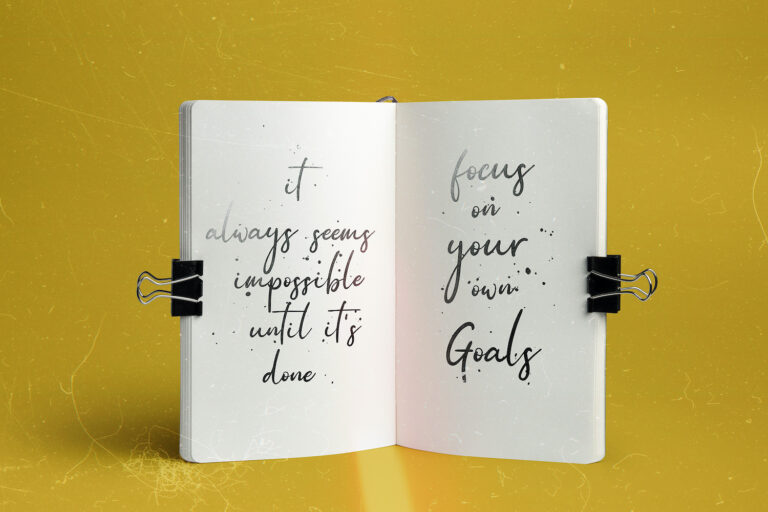 it
always seems
impossible
until it's
done
focus
on
your
own
Goals